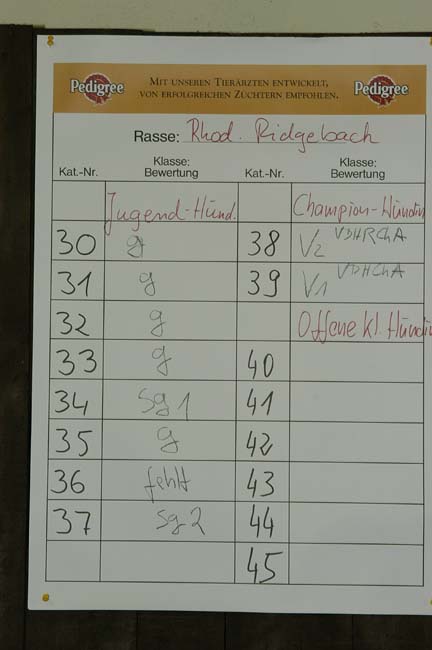 Pedigree
MIT UNSEREN TIERÄRZTEN ENTWICKELT,
VON ERFOLGREICHEN ZÜCHTERN EMPFOHLEN.
Pedigree
Rasse: Rhod. Ridgebach
Kat.-Nr. Klasse: Bewertung Kat.-Nr. Klasse: Bewertung
Jugend-Hünd. Champion-Hündin
30 g 38 V2 VDHRChA
31 g 39 V1 VDHChA
32 g Offene kl. Hündin
33 g 40
34 sg 1 41
35 g 42
36 fehlt 43
37 sg 2 44
45